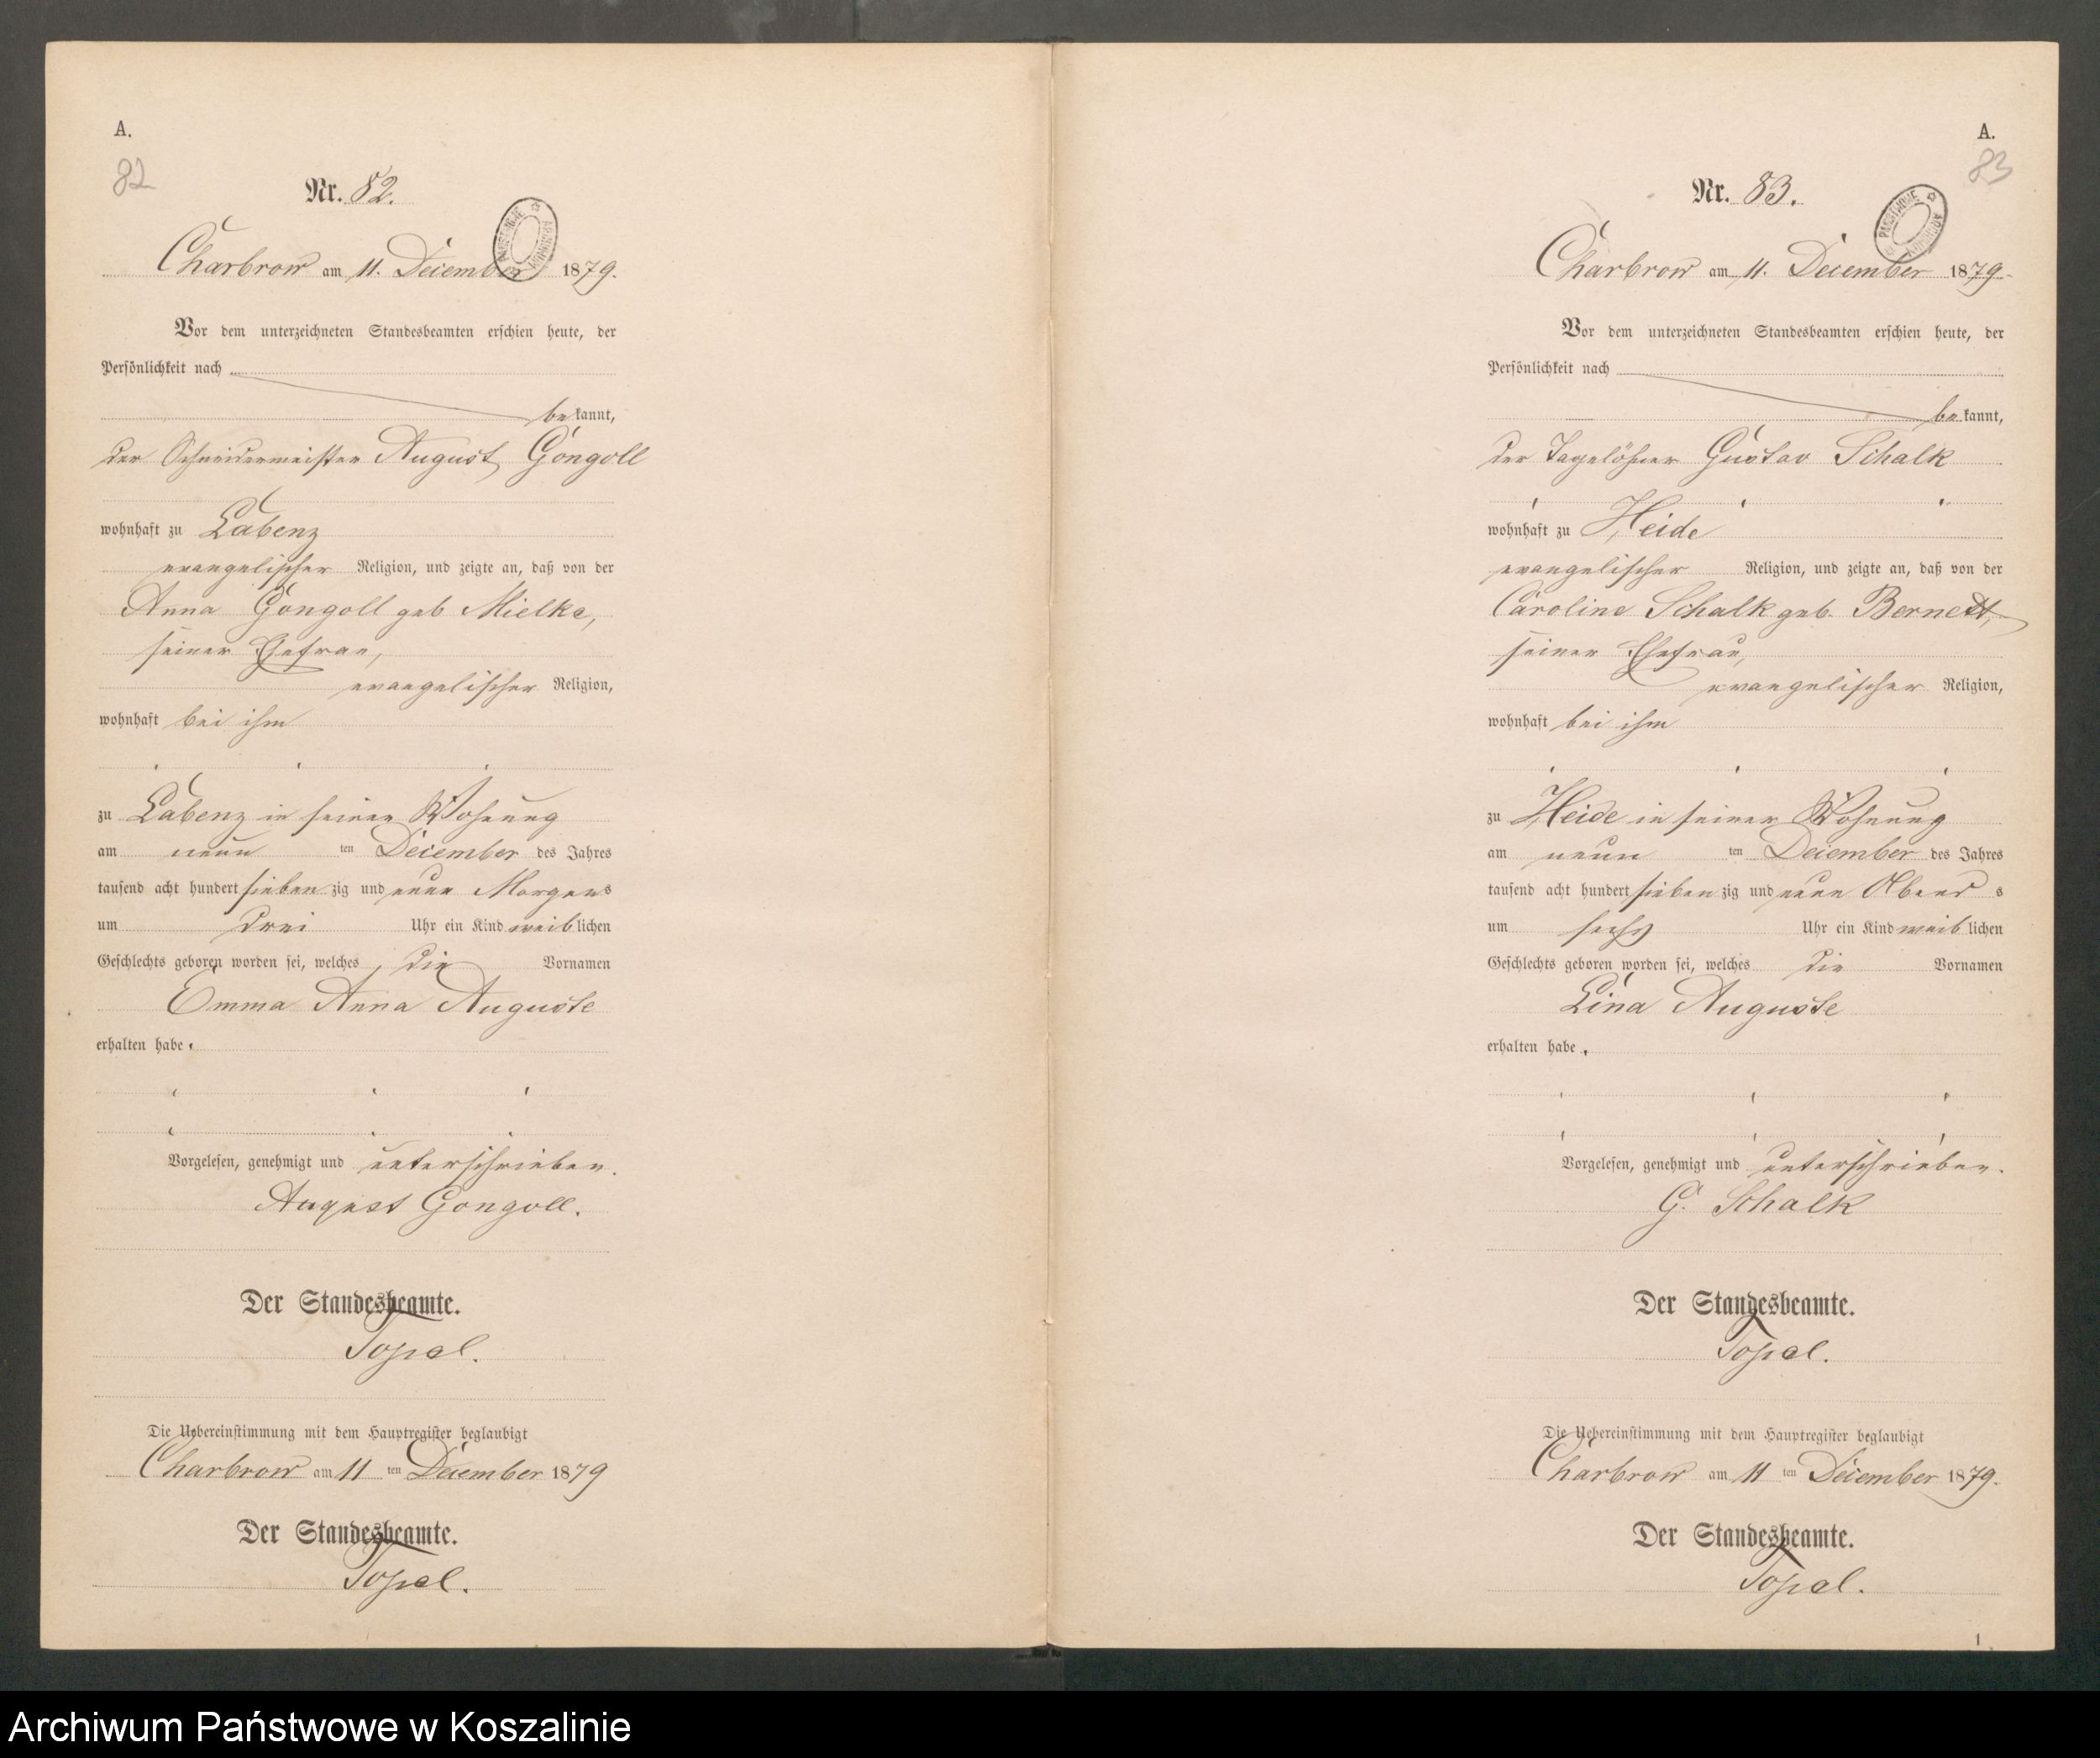 A.
82
Nr. 82.
Charbrow am 11. December 1879.
Vor dem unterzeichneten Standesbeamten erschien heute, der
Persönlichkeit nach
bekannt,
der Schneidermeister August Gongoll
wohnhaft zu Labenz
evangelischer Religion, und zeigte an, daß von der
Anna Gongoll geb Mielke,
seiner Ehefrau,
evangelischer Religion,
wohnhaft bei ihm
zu Labenz in seiner Wohnung
am neun ten December des Jahres
tausend acht hundert siebenzig und neun Morgens
um drei Uhr ein Kind weiblichen
Geschlechts geboren worden sei, welches die Vornamen
Emma Anna Auguste
erhalten habe.
Vorgelesen, genehmigt und unterschrieben.
August Gongoll.
Der Standesbeamte.
Topel.
Die Uebereinstimmung mit dem Hauptregister beglaubigt
Charbrow am 11 ten December 1879
Der Standesbeamte.
Topel.
A.
83
Nr. 83.
PAŃSTWOWE ARCHIWUM
Charbrow am 11. December 1879.
Vor dem unterzeichneten Standesbeamten erschien heute, der
Persönlichkeit nach
bekannt,
der Tagelöhner Gustav Schalk
wohnhaft zu Heide
evangelischer Religion, und zeigte an, daß von der
Caroline Schalk geb. Bernett,
seiner Ehefrau,
evangelischer Religion,
wohnhaft bei ihm
zu Heide in seiner Wohnung
am neun ten December des Jahres
tausend acht hundert siebenzig und neun Abends
um sechs Uhr ein Kind weiblichen
Geschlechts geboren worden sei, welches die Vornamen
Lina Auguste
erhalten habe.
Vorgelesen, genehmigt und unterschrieben.
G. Schalk
Der Standesbeamte.
Topel.
Die Uebereinstimmung mit dem Hauptregister beglaubigt
Charbrow am 11 ten December 1879.
Der Standesbeamte.
Topel.
Archiwum Państwowe w Koszalinie